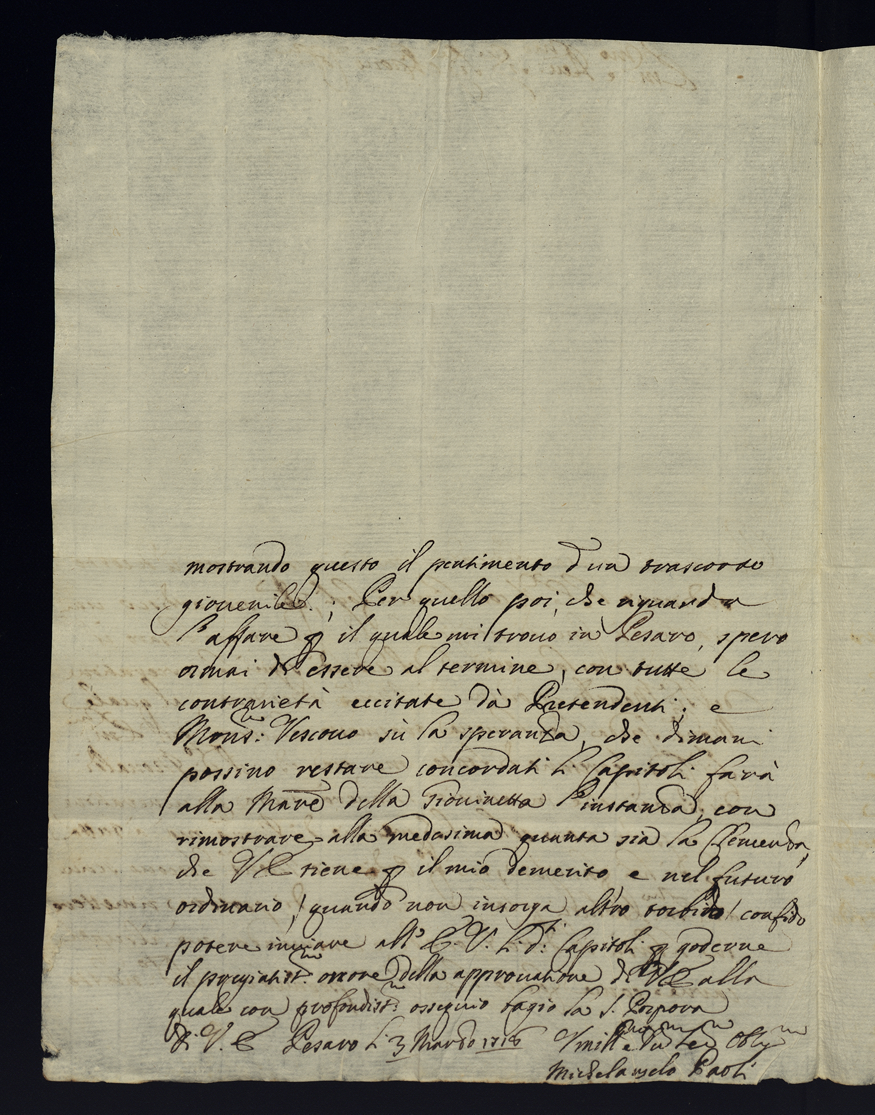 mostrando questo il pentimento d'un trascorso
giovenile.; Per quello poi, che riguarda
l'affare p il quale mi trovo in Pesaro, spero
ormai di essere al termine, con tutte le
contrarietà eccitate dà Pretendenti; e
Mons:r Vescovo sù la speranza, che dimani
possino restare concordati li Capitoli farà
alla Mãre della Giovinetta l'instanza, con
rimostrare alla medesima quanta sia la Clemenza,
che V.E. tiene p il mio demerito e nel futuro
ordinario, quando non insorga altro torbido, confido
potere inviare all' E. V. li d.i Capitoli p goderne
il pregiatis.mo onore della approvatione di V.E. alla
quale con profondis.mo ossequio bagio la S. Porpora
Di V. E. Pesaro li 3 Marzo 1716 Umill.mo e Obg.mo
Michelangelo Paoli